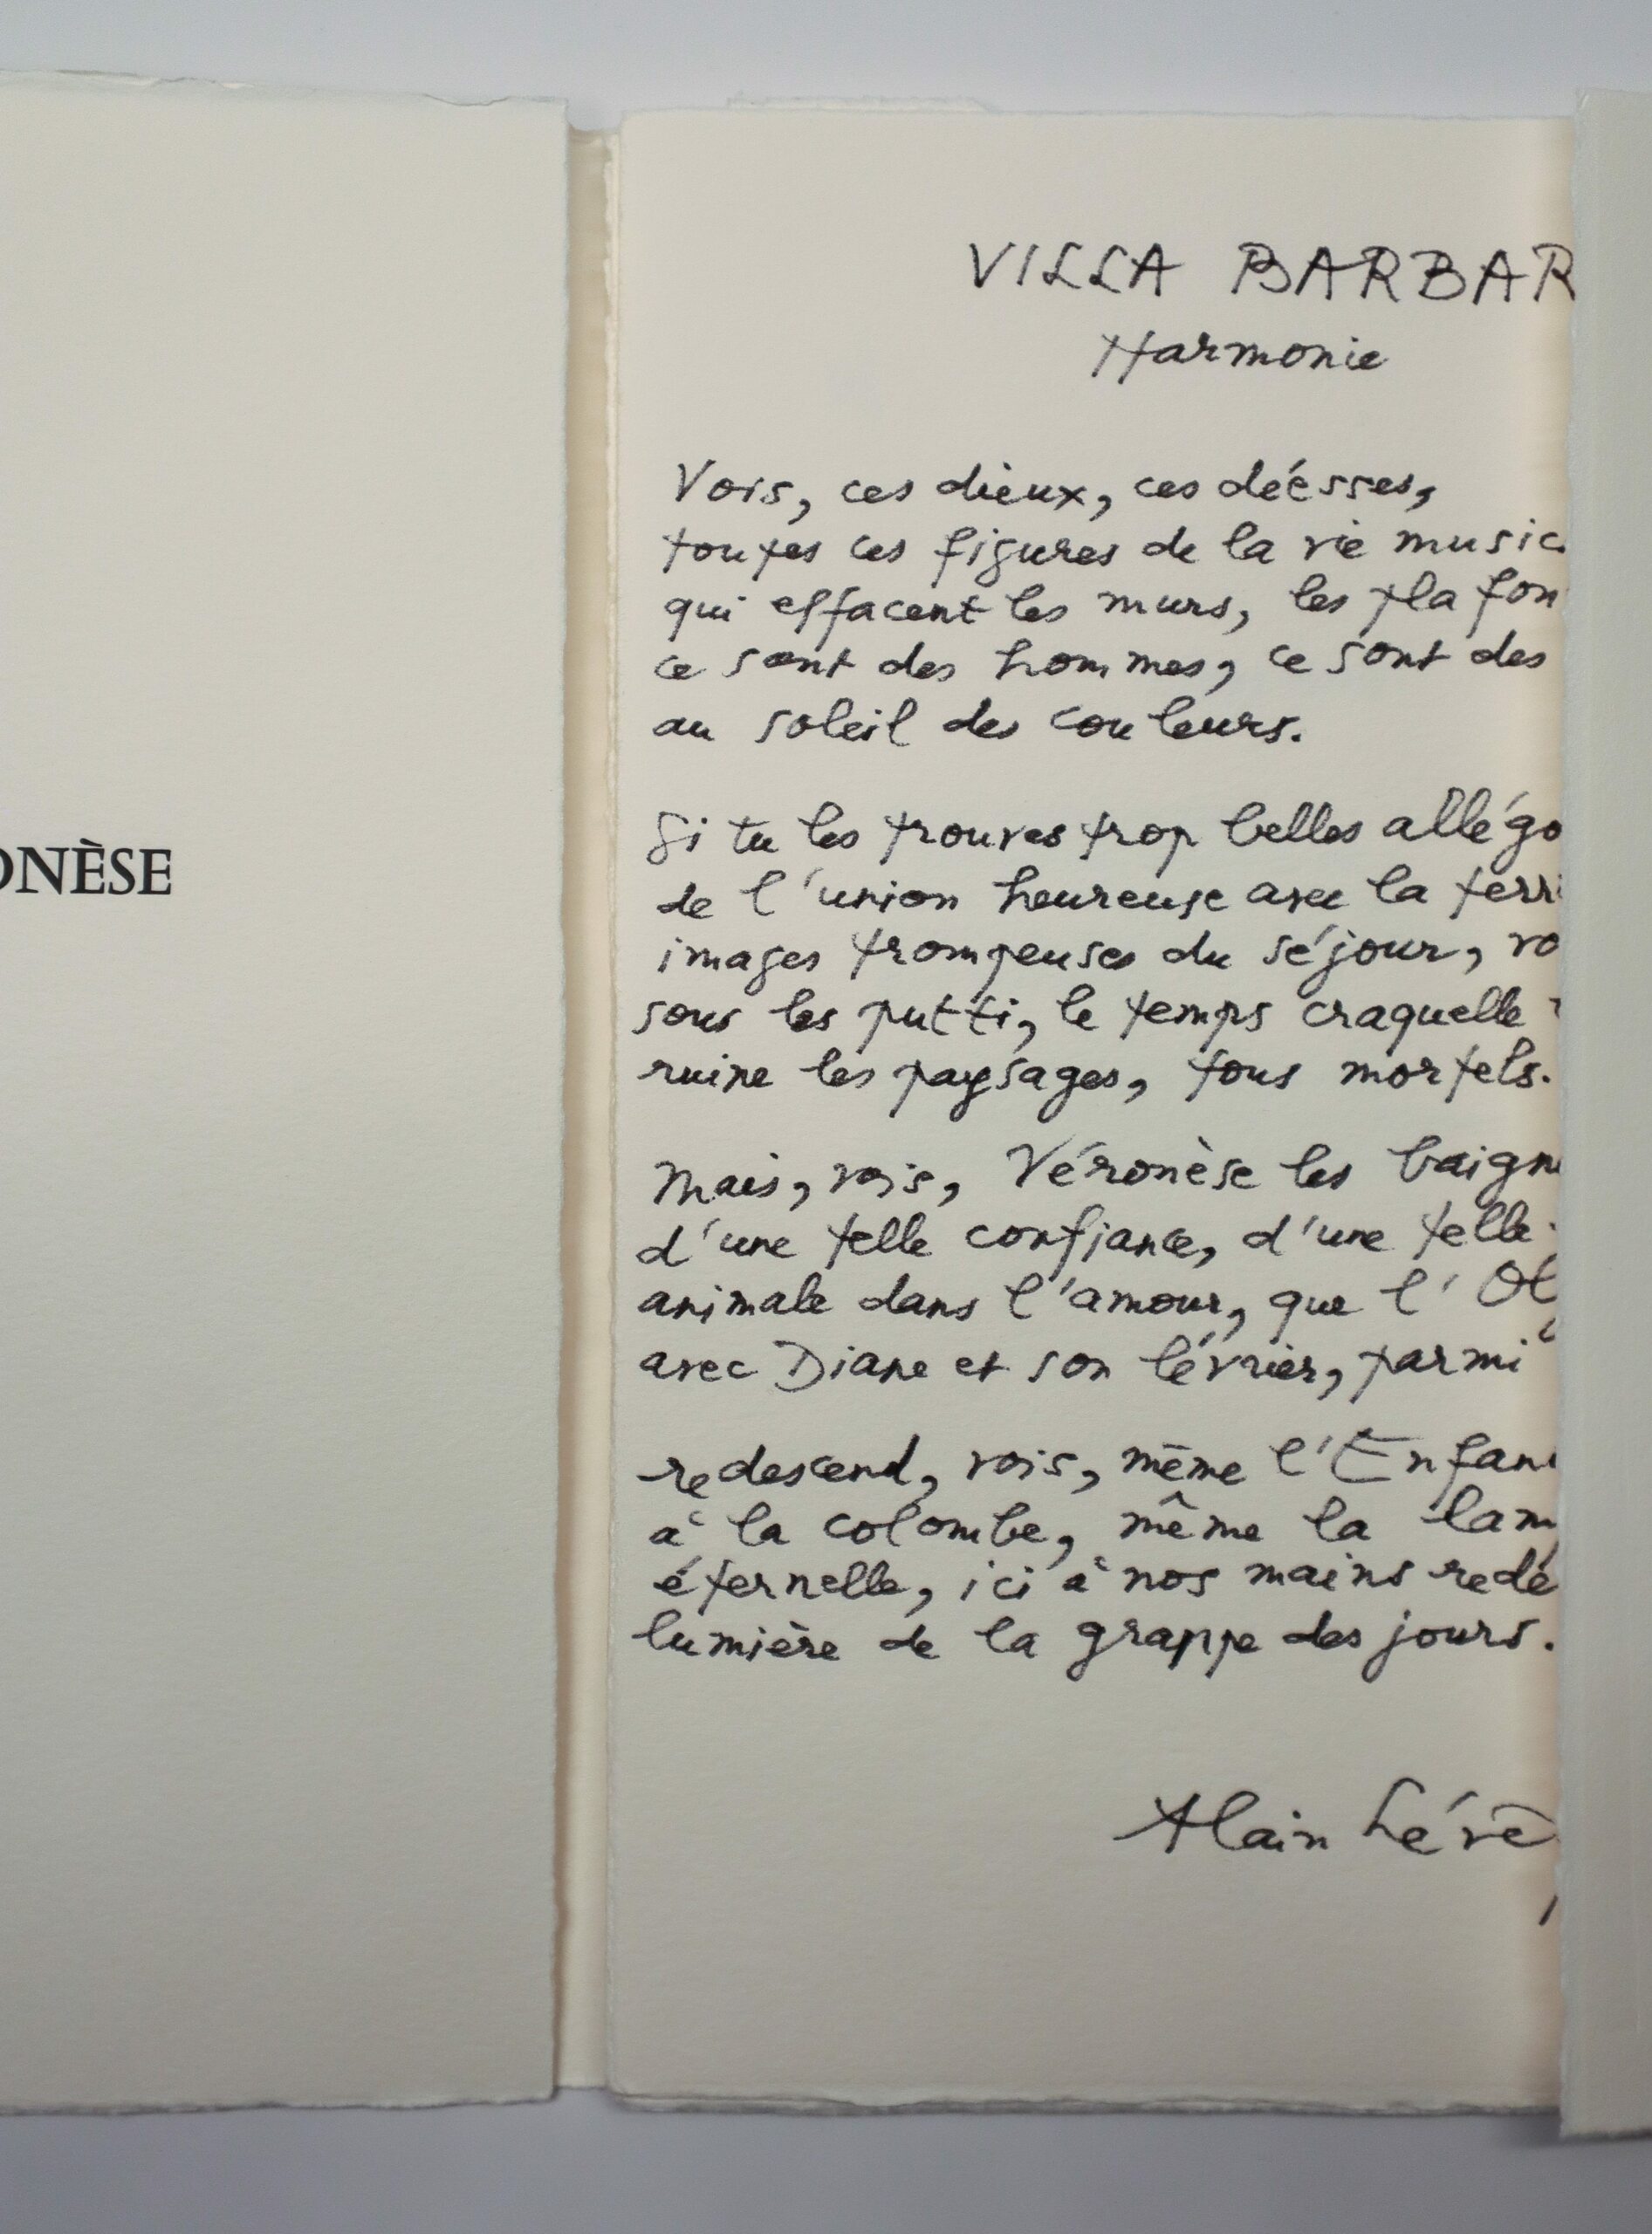 ONÈSE
VILLA BARBAR
Harmonie
Vois, ces dieux, ces déesses,
toutes ces figures de la vie music
qui effacent les murs, les plafon
ce sont des hommes, ce sont des
au soleil des couleurs.
Si tu les trouves trop belles allégo
de l'union heureuse avec la terr
images trompeuses du séjour, vo
sous les putti, le temps craquelle
ruine les paysages, tous mortels.
Mais, vois, Véronèse les baign
d'une telle confiance, d'une telle
animale dans l'amour, que l'Ol
avec Diane et son lévrier, parmi
redescend, vois, même l'Enfan
à la colombe, même la lam
éternelle, ici à nos mains redé
lumière de la grappe des jours.
Alain Lévê